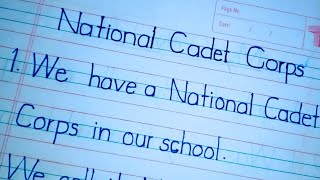 Page No.
Date: / /
National Cadet Corps
1. We have a National Cadet
Corps in our school.
We call